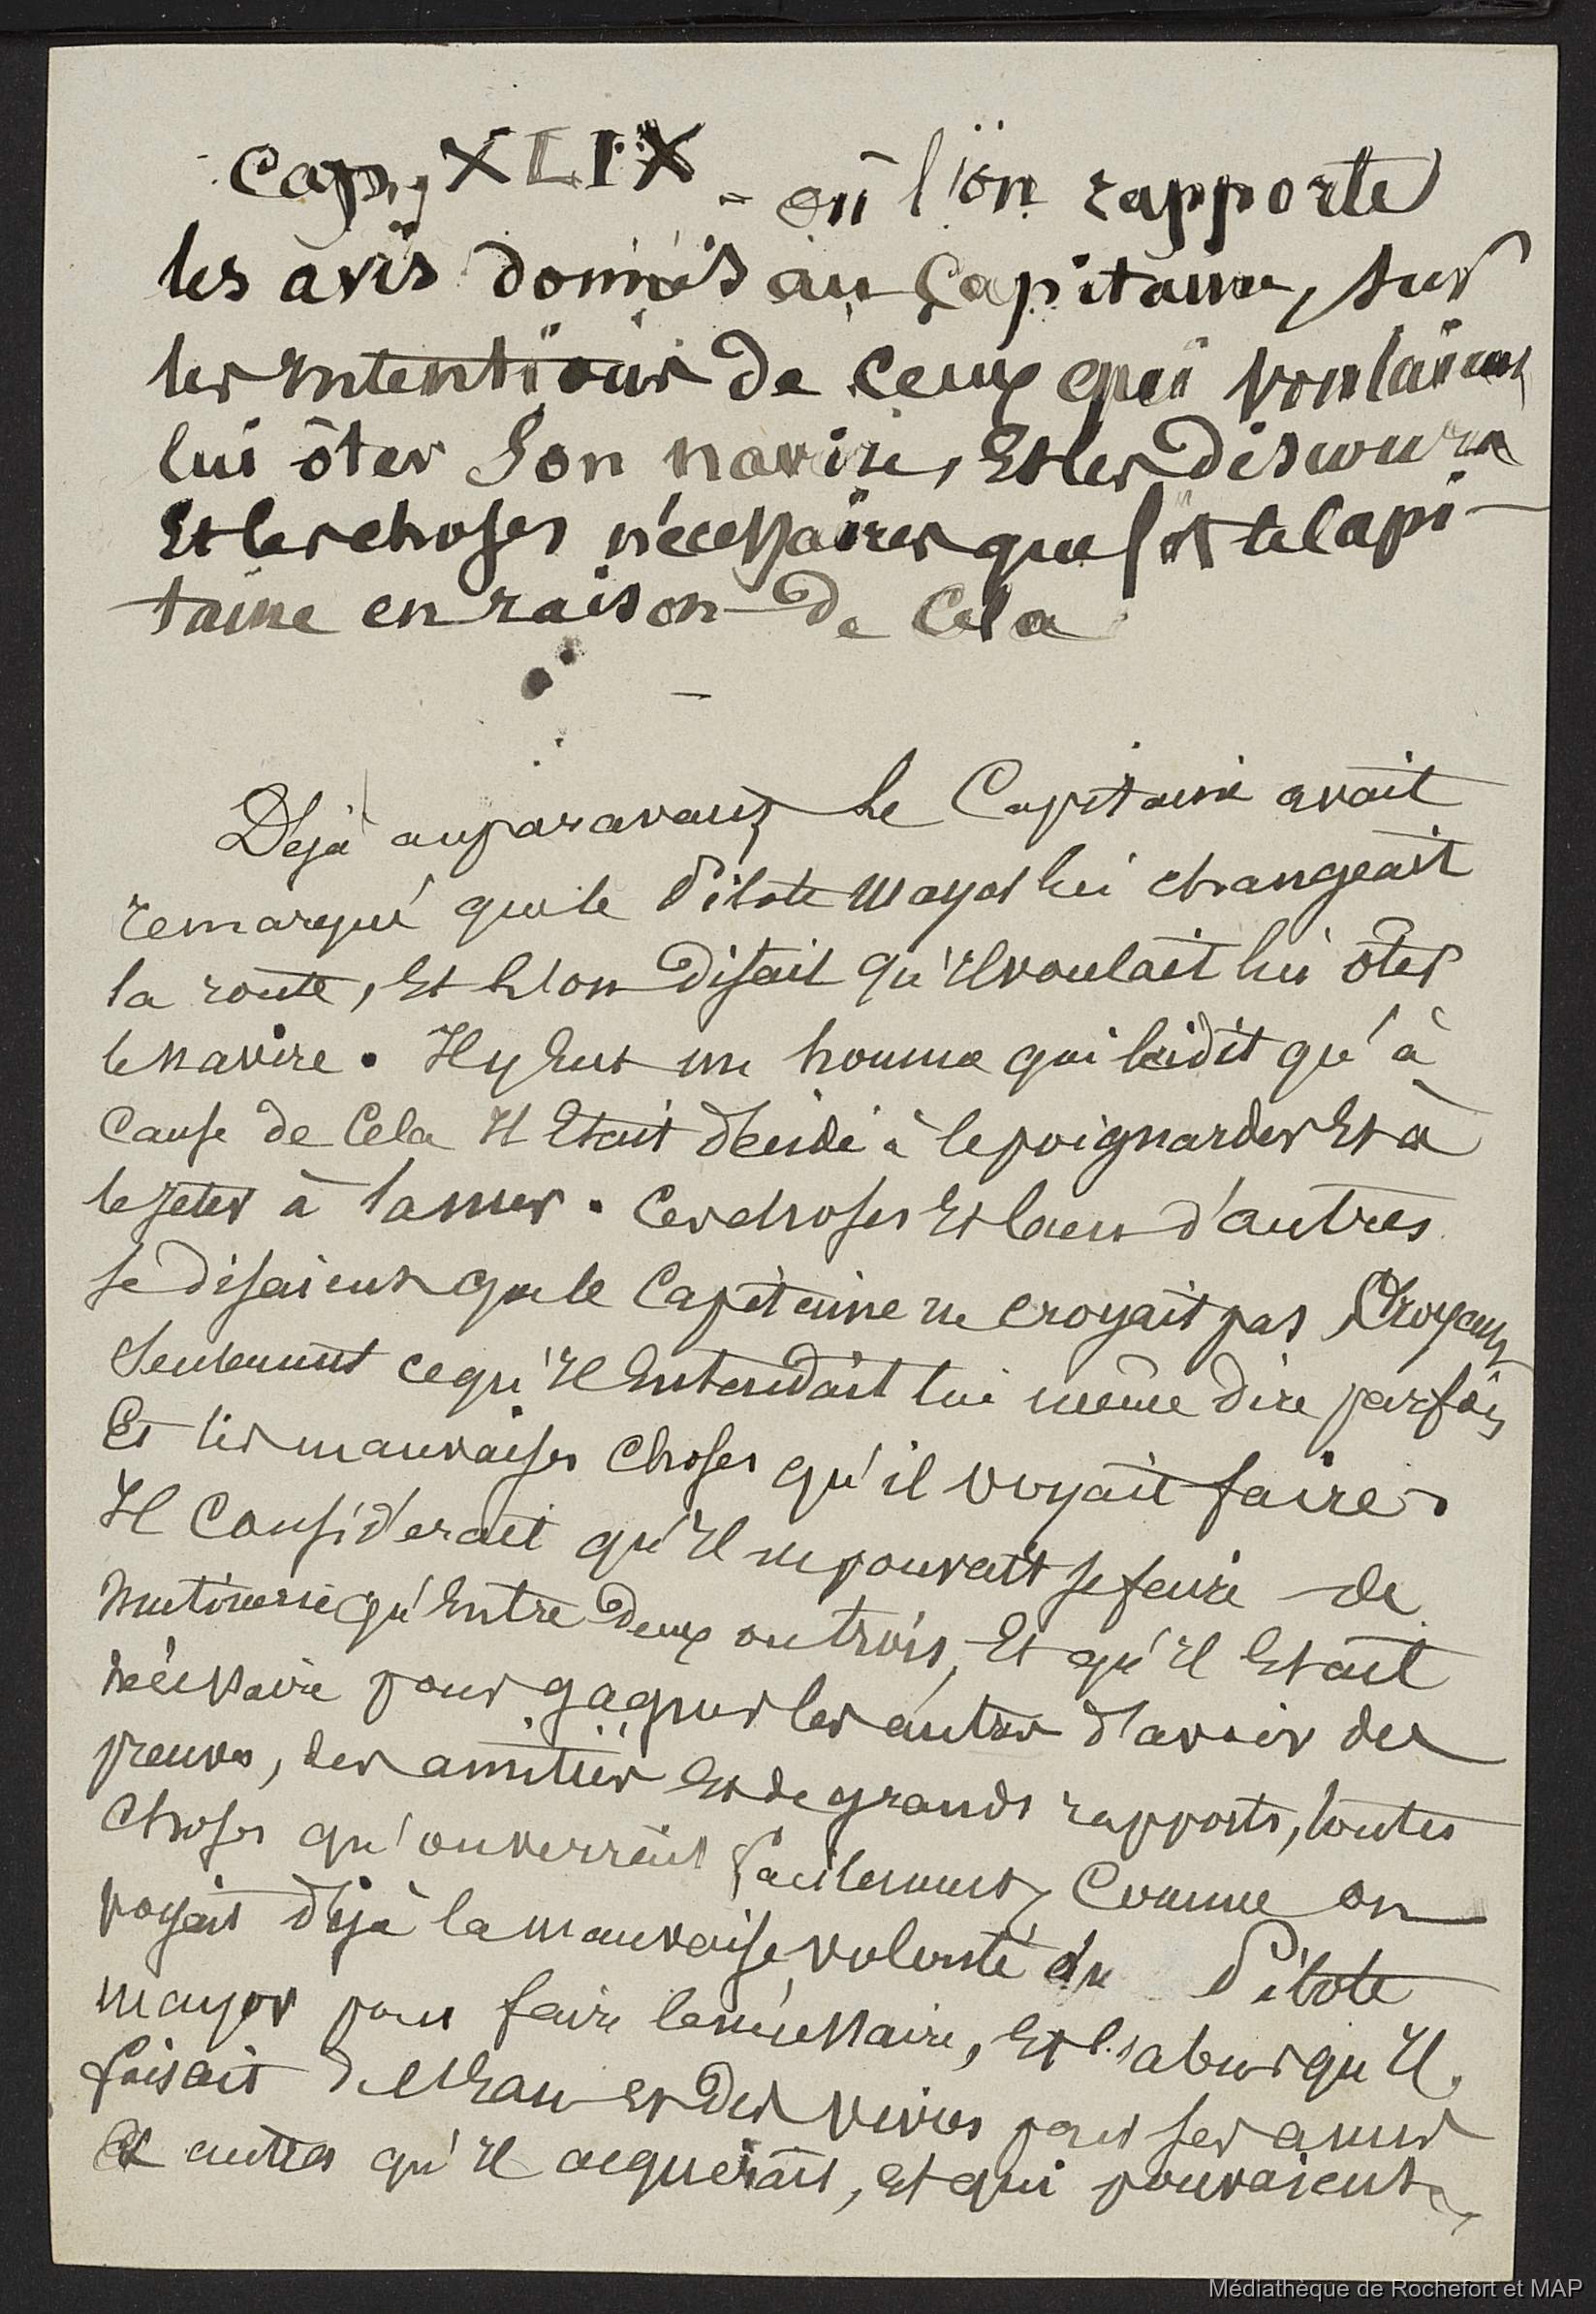 Cap. XLIX - où l'on rapporte
les avis donnés au Capitaine, sur
les intentions de ceux qui voulaient
lui ôter son navire, Et les discours
Et les choses nécessaires que fit le Capi-
taine en raison de Cela
Déjà auparavant, le Capitaine avait
remarqué que le Pilote Mayor lui changeait
la route, Et l'on disait qu'Il voulait lui ôter
le navire. Il y Eut un homme qui lui dit qu'à
Cause de Cela Il Etait décidé à le poignarder Et à
le jeter à la mer. Ces choses Et bien d'autres
se disaient que le Capitaine ne croyait pas, Croyant
Seulement ce qu'Il Entendait lui même dire parfois
Et les mauvaises Choses qu'il voyait faire.
Il Considérait qu'Il ne pouvait se faire de
mutinerie qu'Entre deux ou trois, Et qu'Il Etait
nécessaire pour gagner les autres d'avoir des
preuves, des amitiés Et de grands rapports, toutes
Choses qu'on verrait facilement, Comme on
voyait déjà la mauvaise volonté du Pilote
mayor pour faire le nécessaire, Et l'abus qu'Il
faisait de l'Eau Et des vivres pour ses amis
Et autres qu'Il acquérait, Et qui pouvaient
Médiathèque de Rochefort et MAP